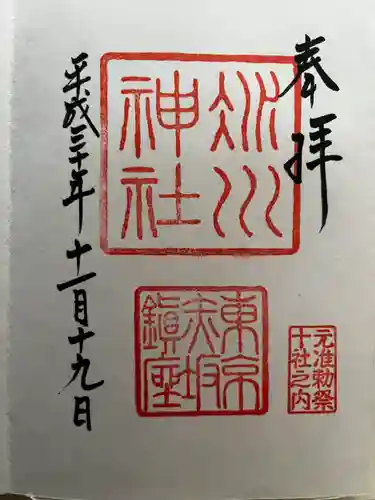 奉拝
氷川
神社
東京
赤坂
鎮座
元准勅祭
十社之内
平成三十年十一月十九日